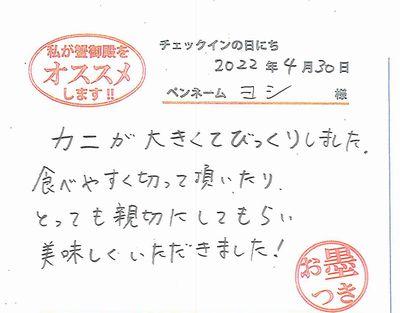 私が蟹御殿を
オススメ
します!!
チェックインの日にち
2022年4月30日
ペンネーム ヨシ 様
カニが大きくてびっくりしました。
食べやすく切って頂いたり、
とっても親切にしてもらい
美味しくいただきました!
お墨
つき